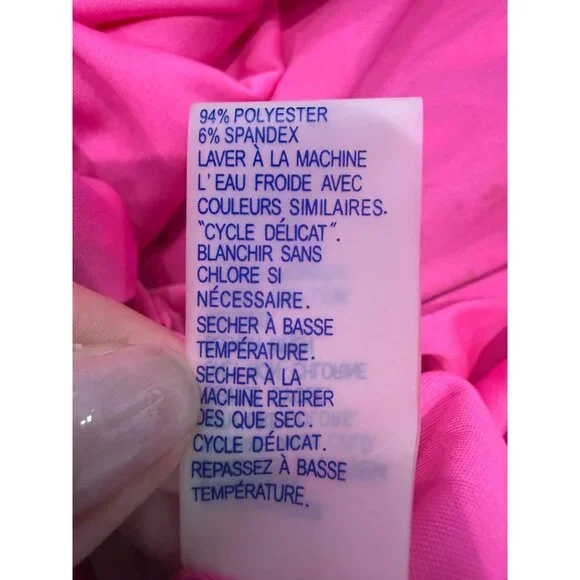 94% POLYESTER
6% SPANDEX
LAVER À LA MACHINE
L'EAU FROIDE AVEC
COULEURS SIMILAIRES.
"CYCLE DÉLICAT".
BLANCHIR SANS
CHLORE SI
NÉCESSAIRE.
SECHER À BASSE
TEMPÉRATURE.
SECHER À LA
MACHINE RETIRER
DES QUE SEC.
CYCLE DÉLICAT.
REPASSEZ À BASSE
TEMPÉRATURE.